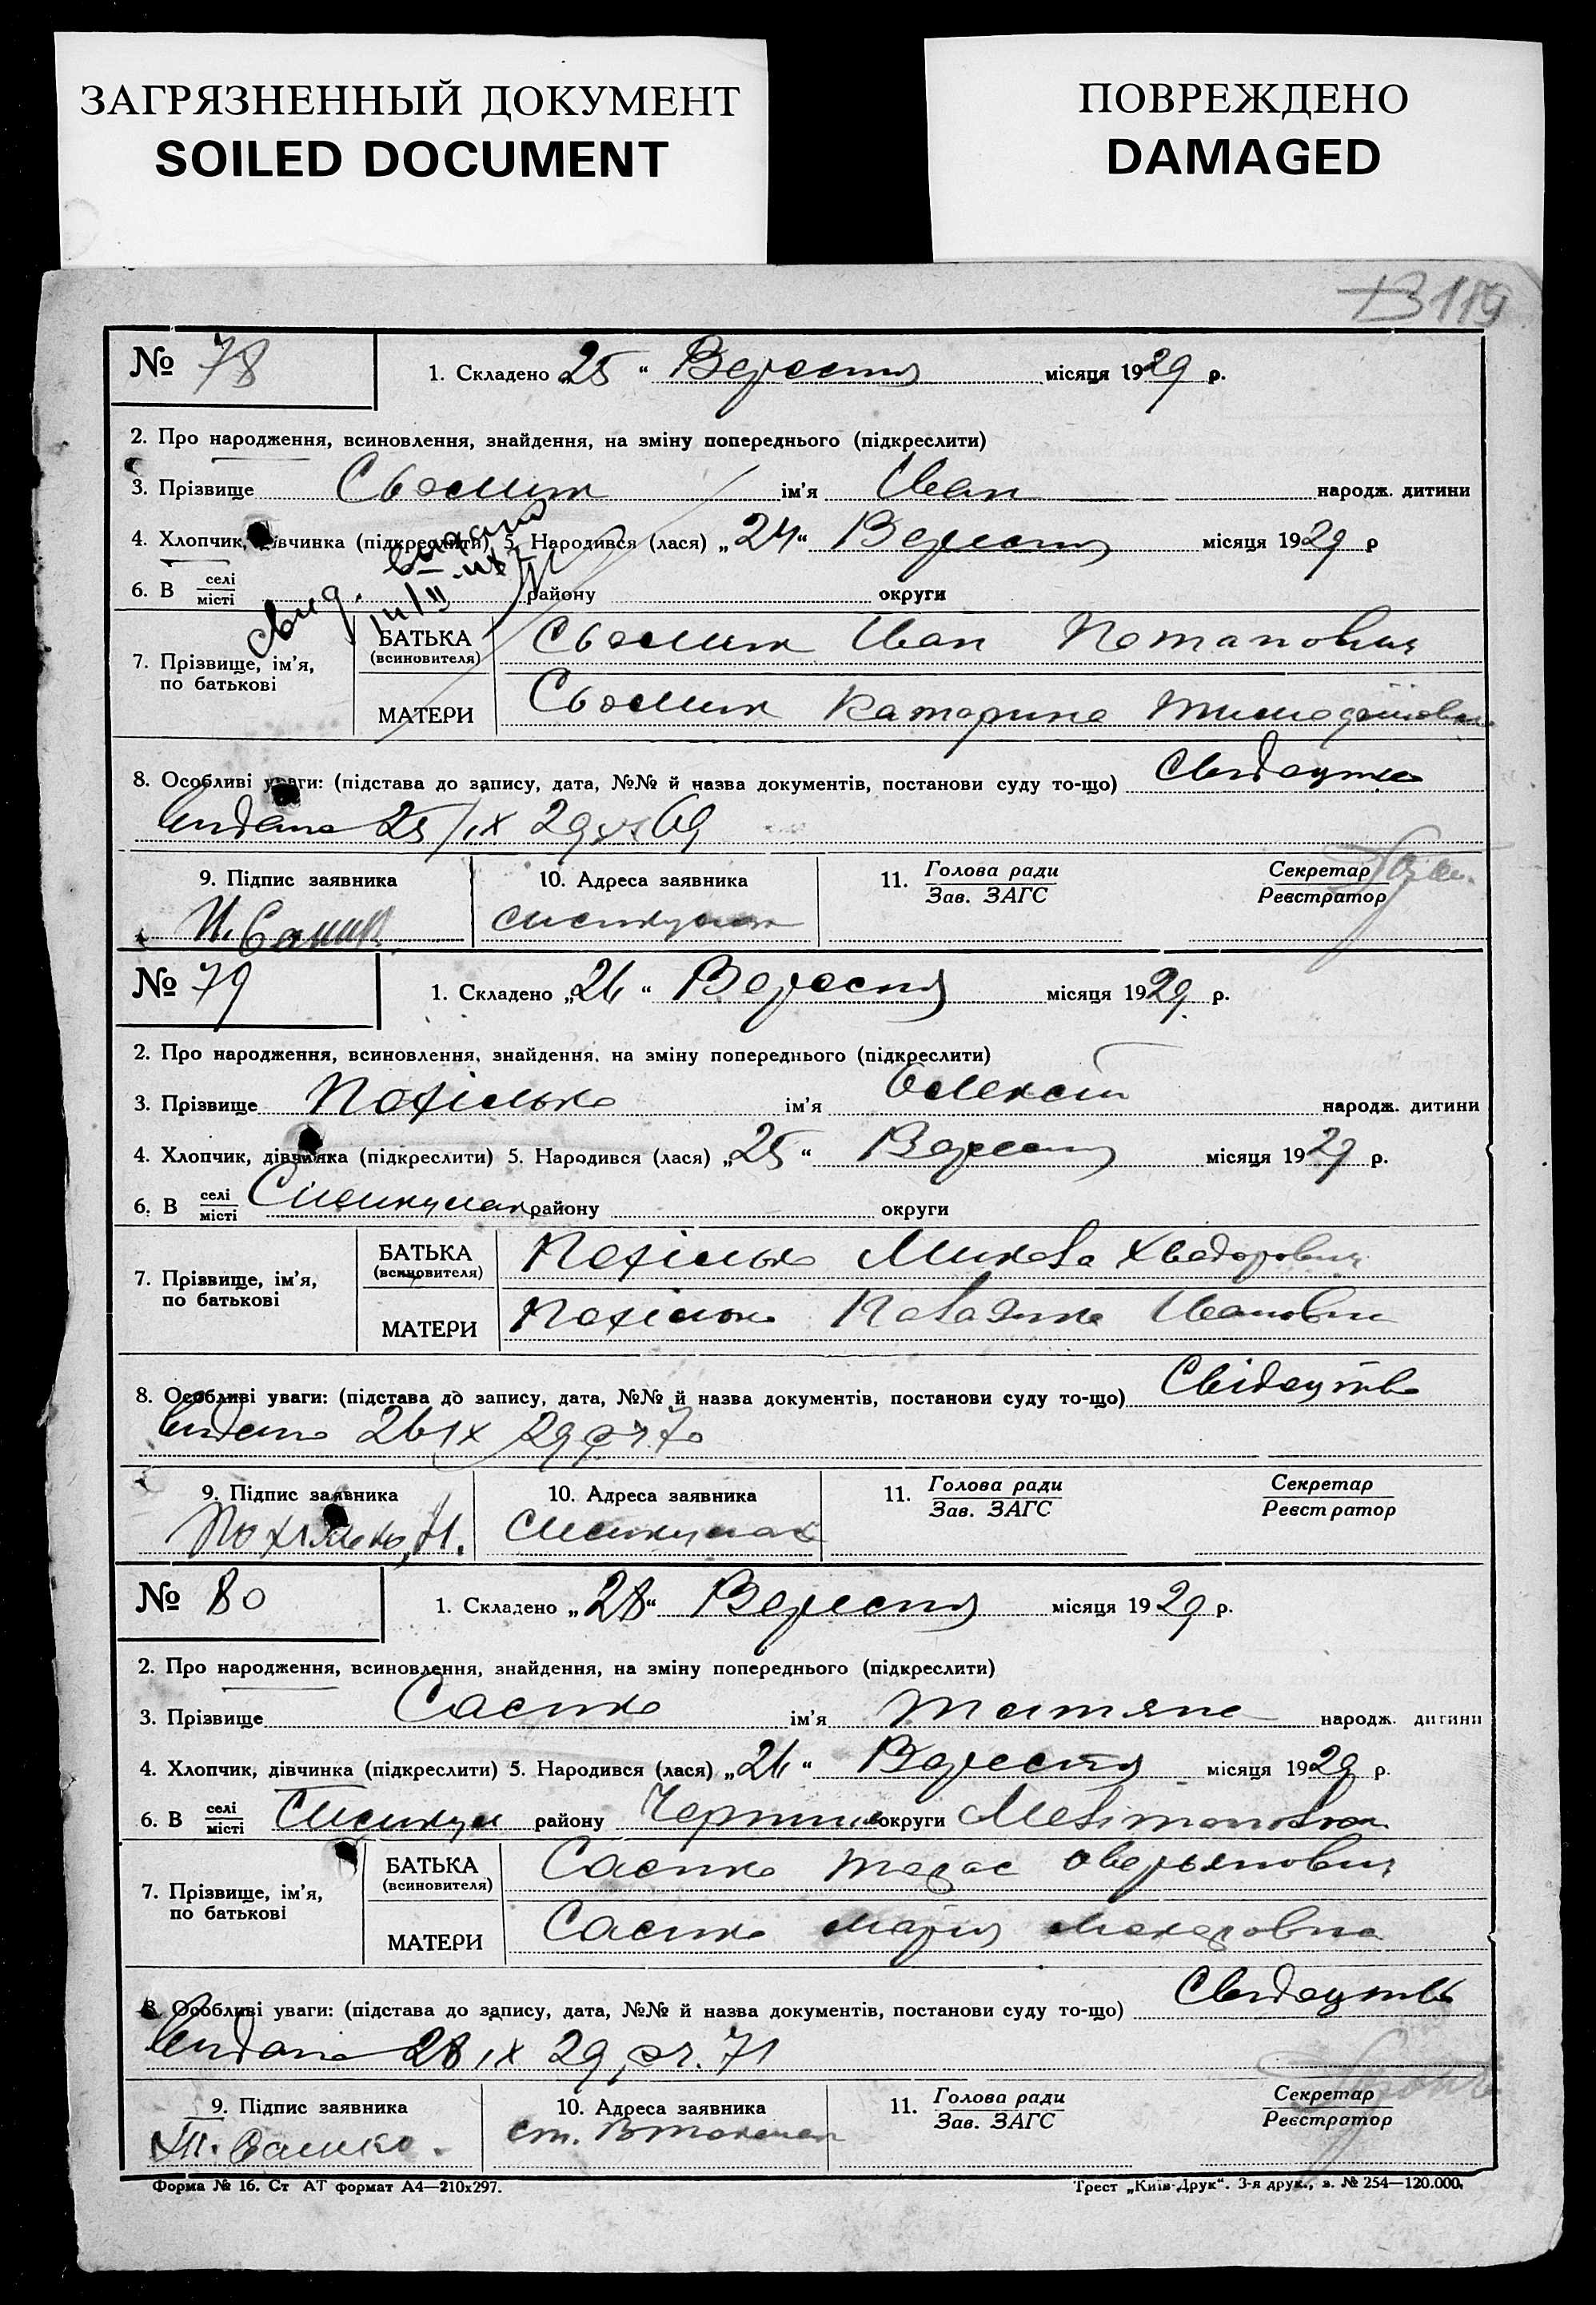 ЗАГРЯЗНЕННЫЙ ДОКУМЕНТ
SOILED DOCUMENT
ПОВРЕЖДЕНО
DAMAGED
№ 78
1. Складено 25 “ Вересня місяця 1929 р.
2. Про народження, всиновлення, знайдення, на зміну попереднього (підкреслити)
3. Прізвище ім’я Іван народж. дитини
4. Хлопчик, дівчинка (підкреслити) 5. Народився (лася) „ 24 “ Вересня місяця 1929 р
6. В селі місті району округи
свид. видано
7. Прізвище, ім’я, по батькові
БАТЬКА (всиновителя) Іван Потапович
МАТЕРИ Катерина
8. Особливі уваги: (підстава до запису, дата, №№ й назва документів, постанови суду то-що) Свідоцтво
видано 25/IX 29 69
9. Підпис заявника
10. Адреса заявника
11. Голова ради Зав. ЗАГС
Секретар Реєстратор
№ 79
1. Складено „ 26 “ Вересня місяця 1929 р.
2. Про народження, всиновлення, знайдення, на зміну попереднього (підкреслити)
3. Прізвище Похілько ім’я Олексій народж. дитини
4. Хлопчик, дівчинка (підкреслити) 5. Народився (лася) „ 25 “ Вересня місяця 1929 р.
6. В селі місті району округи
7. Прізвище, ім’я, по батькові
БАТЬКА (всиновителя) Похілько Микола Хведорович
МАТЕРИ Похілько Івановна
8. Особливі уваги: (підстава до запису, дата, №№ й назва документів, постанови суду то-що) Свідоцтво
видано 26 IX 29 р 70
9. Підпис заявника
10. Адреса заявника
11. Голова ради Зав. ЗАГС
Секретар Реєстратор
№ 80
1. Складено „ 28 “ Вересня місяця 1929 р.
2. Про народження, всиновлення, знайдення, на зміну попереднього (підкреслити)
3. Прізвище Сасико ім’я Татяна народж. дитини
4. Хлопчик, дівчинка (підкреслити) 5. Народився (лася) „ 26 “ Вересня місяця 1929 р.
6. В селі місті району округи
7. Прізвище, ім’я, по батькові
БАТЬКА (всиновителя) Сасико Тарас Оверьянович
МАТЕРИ Сасико Марія Макаровна
8. Особливі уваги: (підстава до запису, дата, №№ й назва документів, постанови суду то-що) Свідоцтво
видано 28 IX 29 р 71
9. Підпис заявника
10. Адреса заявника
11. Голова ради Зав. ЗАГС
Секретар Реєстратор
Форма № 16. Ст АТ формат А4—210x297.
Трест „Київ-Друк“. 3-я друк., з. № 254—120.000.